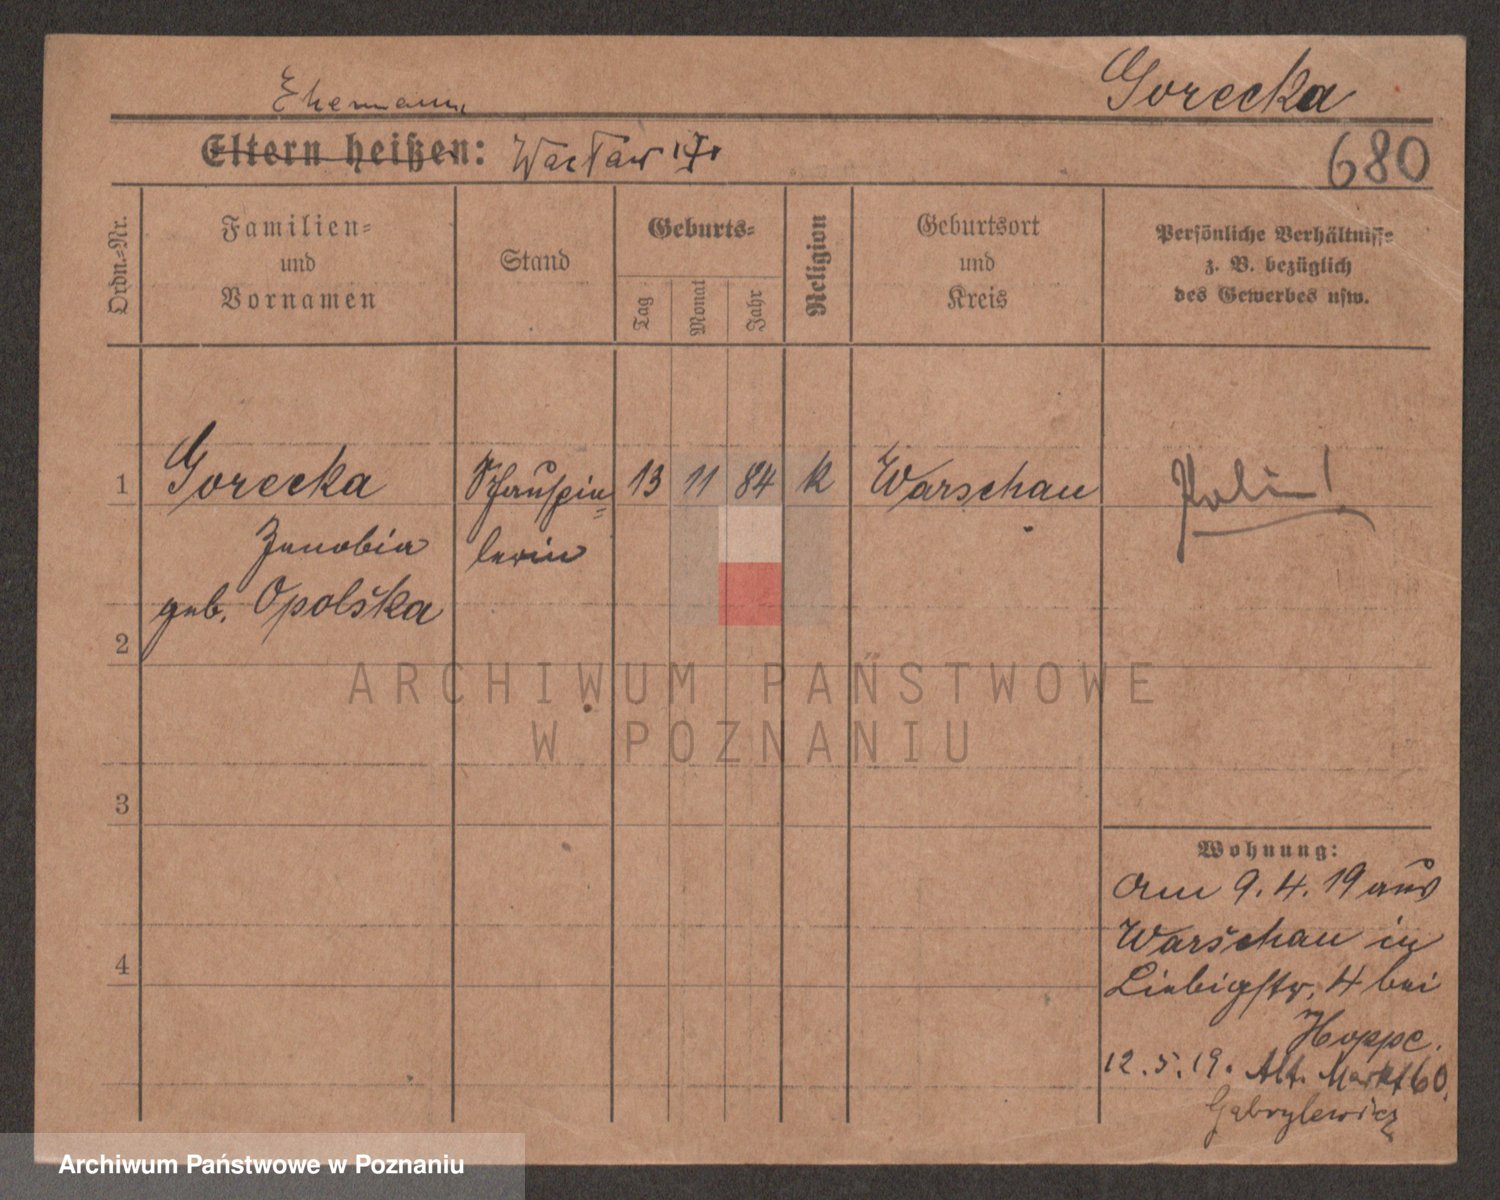 Ehemann
Gorecka
Eltern heißen: Wacław
680
Ordn.-Nr.
Familien-
und
Vornamen
Stand
Geburts-
Tag
Monat
Jahr
Religion
Geburtsort
und
Kreis
Persönliche Verhältnisse
z. B. bezüglich
des Gewerbes usw.
1 Gorecka Schauspie= 13 11 84 k Warschau Polin!
Zenobia lerin
geb. Opolska
2
ARCHIWUM PAŃSTWOWE
W POZNANIU
3
Wohnung:
am 9. 4. 19 aus
Warschau in
4
Liebigstr. 4 bei
Hoppe.
12. 5. 19. Alt. Markt 60.
Gabrylewicz
Archiwum Państwowe w Poznaniu